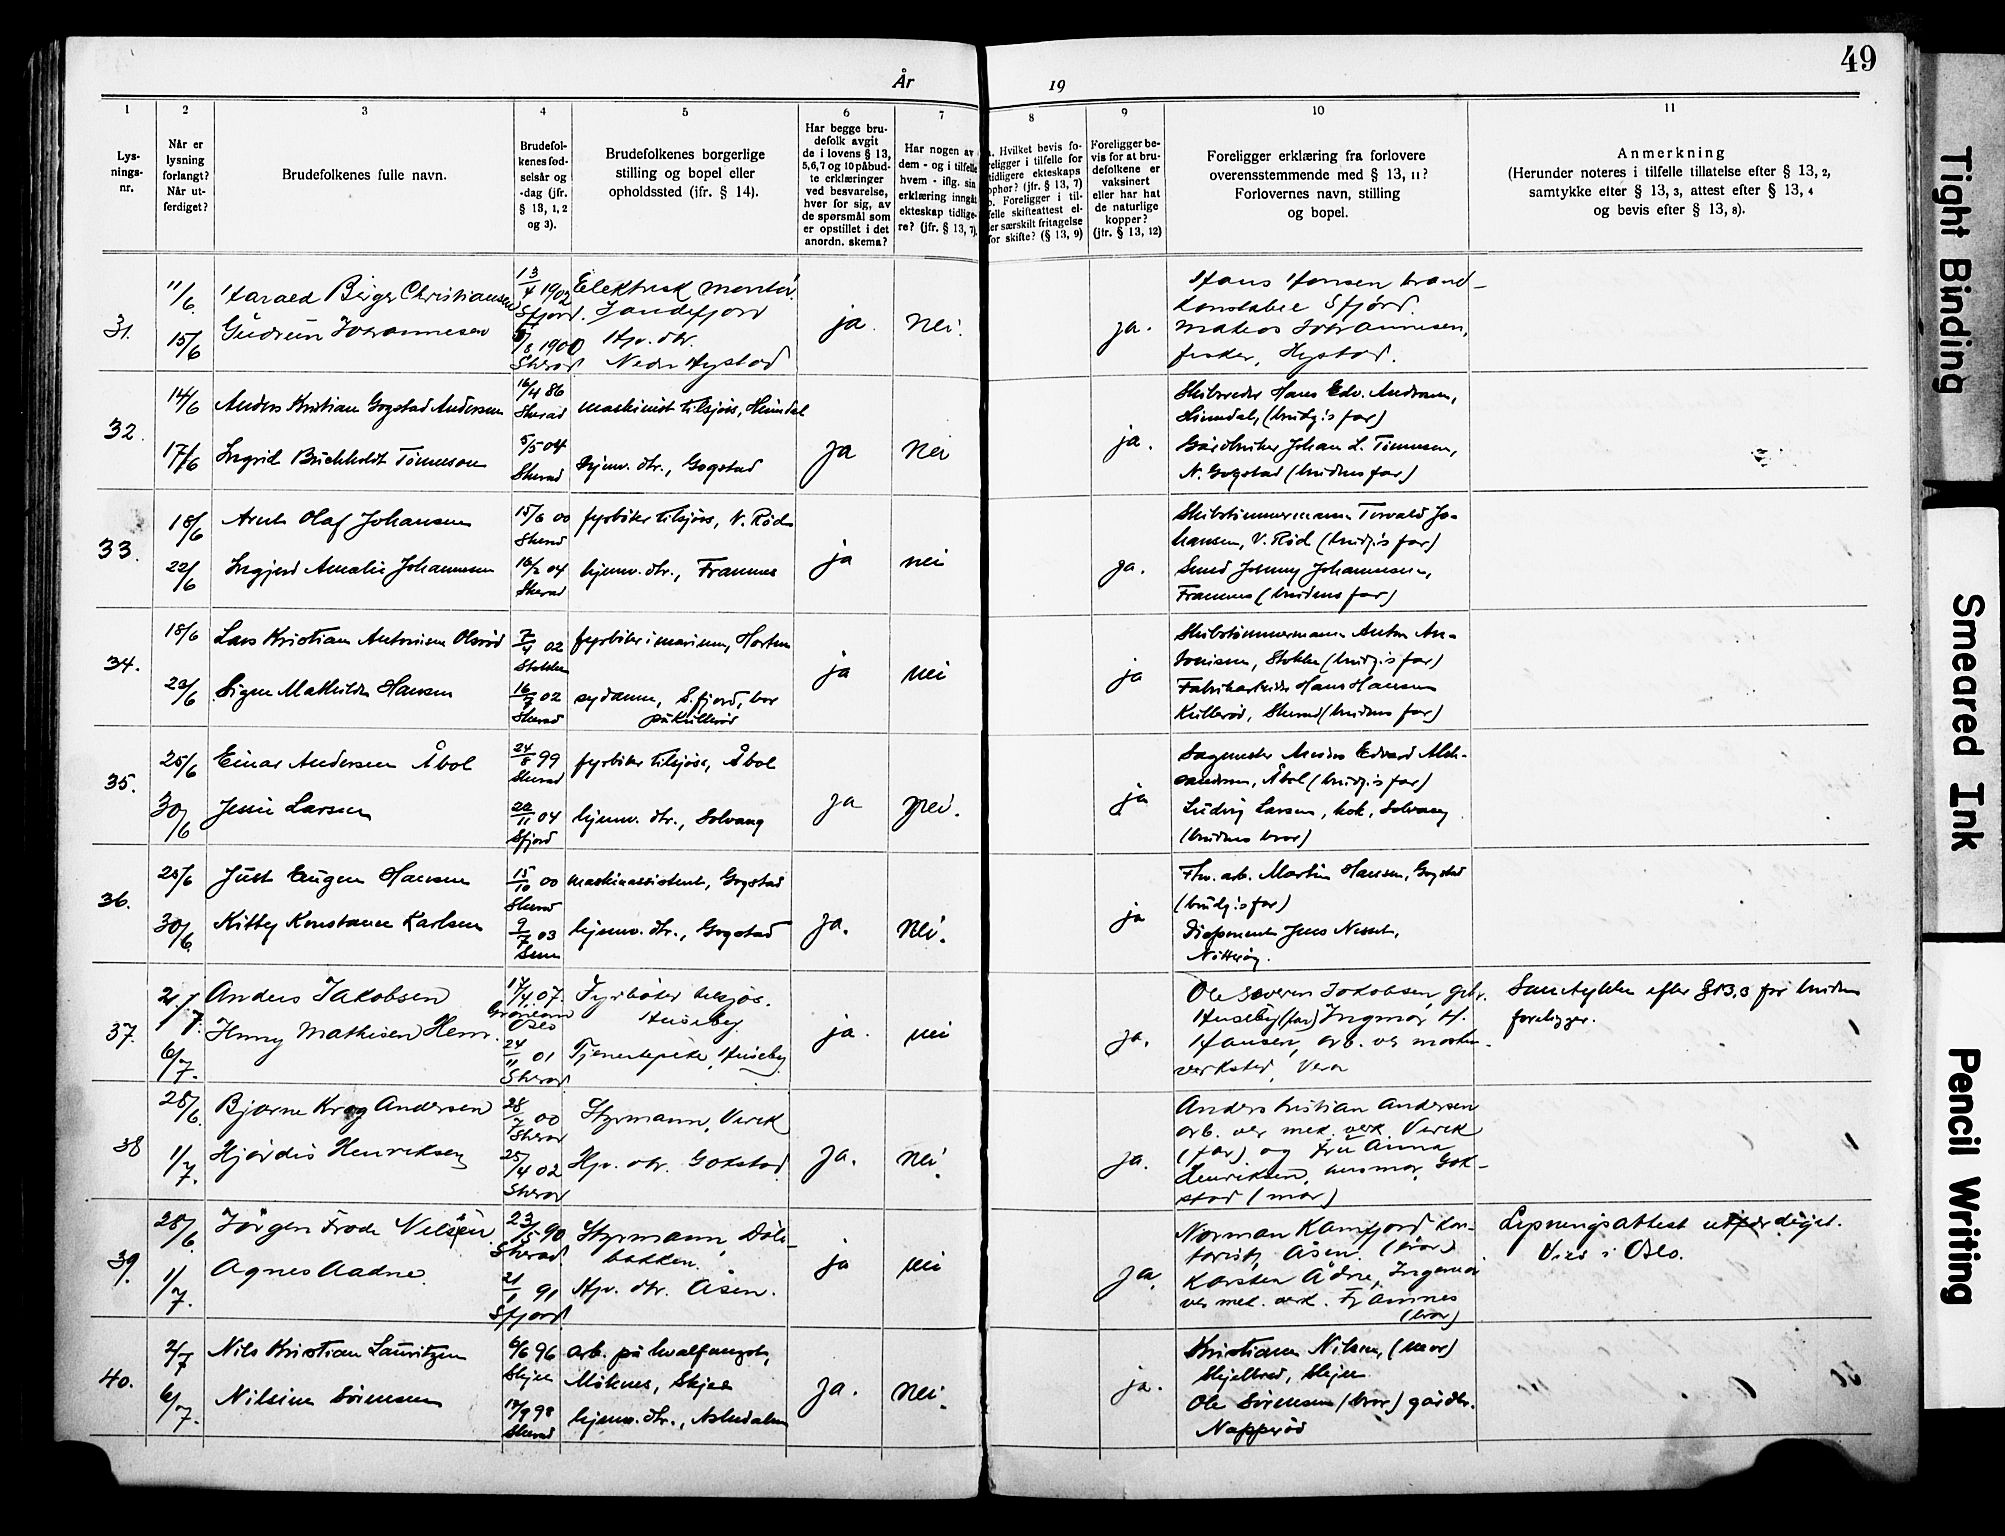 49
År 19
1
Lys-
nings-
nr.
2
Når er
lysning
forlangt?
Når ut-
ferdiget?
3
Brudefolkenes fulle navn.
4
Brudefol-
kenes fød-
selsår og
-dag (jfr.
§ 13, 1, 2
og 3).
5
Brudefolkenes borgerlige
stilling og bopel eller
opholdssted (ifr. § 14).
6
Har begge bru-
defolk avgit
de i lovens § 13,
5,6,7 og 10 påbud-
te erklæringer
ved besvarelse,
hver for sig, av
de spørsmål som
er opstillet i det
anordn. skema?
7
Har nogen av
dem - og i tilfelle
hvem - iflg. sin
erklæring inngåt
ekteskap tidlige-
re? (jfr. § 13, 7).
8
Hvilket bevis fo-
religger i tilfelle for
tidligere ekteskaps
ophør? (jfr. § 13, 7)
Foreligger i til-
felle skifteattest el-
ler særskilt fritagelse
for skifte? (§ 13, 9)
9
Foreligger be-
vis for at bru-
defolkene er
vaksinert
eller har hat
de naturlige
kopper?
(jfr. § 13, 12)
10
Foreligger erklæring fra forlovere
overensstemmende med § 13, 11?
Forlovernes navn, stilling
og bopel.
11
Anmerkning
(Herunder noteres i tilfelle tillatelse efter § 13, 2,
samtykke efter § 13, 3, attest efter § 13, 4
og bevis efter § 13, 8).
31.
11/6
15/6
Harald Birger Christiansen
Gudrun Johannesen
13/4 1902
Sfjord.
/8 1900
Sherad
Elektrisk montør
Sandefjord
Hjv. dtr.
Nedre Hystad
ja.
nei.
ja.
Hans Hansen brand-
konstabel Sfjord.
Johannesen,
fisker, Hystad.
32.
14/6
17/6
Anders Kristian Gogstad Andersen
Ingrid Buchholdt Tønnesen
16/4 86
Sherad
5/5 04
Sherad
maskinist tilsjøs, Heimdal
hjemv. dtr., Gogstad
ja
nei
ja.
Skibsreder Hans Edv. Andersen,
Heimdal, (brudg.s far)
Gårdbruker Johan L. Tønnesen,
N. Gogstad (brudens far)
33.
18/6
22/6
Arne Olaf Johansen
Ingjerd Amalie Johannesen
15/6 00
Sherad
16/2 04
Sherad
fyrbøter tilsjøs, V. Rød
hjemv. dtr., Framnes
ja
nei
ja.
Skibstømmermann Torvald Jo-
hansen, V. Rød (brudg.s far)
Smed Johnny Johannesen,
Framnes (brudens far)
34.
18/6
23/6
Lars Kristian Antonisen Olsrød
Signe Mathilde Hansen
7/4 02
Stokke
16/7 02
Sherad
fyrbøter i marinen, Horten
sydame, S.fjord, bor
på Kullerød
ja
nei
ja
Skibstømmermann Anton An-
tonisen, Stokke (brudg.s far)
Fabrikarbeider Hans Hansen
Kullerød, Sherad (brudens far)
35.
25/6
30/6
Einar Andersen Åbol
Jenni Larsen
24/8 99
Sherad
20/11 04
Sfjord
fyrbøter tilsjøs, Åbol
hjemv. dtr., Solvang
ja
nei.
ja
Sagmester Anders Edvard Alek-
sandersen, Åbol (brudg.s far)
Ludvig Larsen, kok, Solvang
(brudens bror)
36.
25/6
30/6
Just Eugen Hansen
Kitty Konstance Karlsen
15/10 00
Sherad
9/7 03
Sem
maskinassistent, Gogstad
hjemv. dtr., Gogstad
ja.
nei.
ja
Fhv. arb. Martin Hansen, Gogstad
(brudg.s far)
Disponent Jens Nesset,
Nøtterøy.
37.
2/7
6/7.
Anders Jakobsen
Jenny Mathisen Hem.
17/4.07.
Grønland
Oslo
24/11 01
Sherad
Fyrbøter tilsjøs.
Huseby.
Tjenestepike, Huseby
ja.
nei
ja.
Ole Severin Jakobsen, gbr.
Huseby (far) Ingmar H.
Hansen, arb. ved mask.
verksted, Vera
Samtykke efter § 13,3 for bruden
foreligger.
38
25/6.
1/7.
Bjarne Krog Andersen
Hjørdis Henriksen
28/7 00
Sherad
25/4 02
Sherad
Styrmann, Virik
Hjv. dtr. Gokstad
ja.
nei.
ja.
Anders Kristian Andersen
arb. ved mek. verk. Virik
(far) og Fru Anna
Henriksen, husmor, Gok-
stad (mor)
39.
28/6.
1/7.
Jørgen Frode Nelsen
Agnes Aadne.
23/5 90
Sherad
21/1 91
Sfjord
Styrmann, Døle-
bakken.
Hjv. dtr. Åsen.
ja
nei
ja.
Norman Kamfjord kon-
torist, Åsen. (bror)
Karsten Ådne, Ingeniør
ved mek. verk. Framnes
(bror)
Lysningsattest utferdiget.
Vies i Oslo.
40.
2/7
6/7.
Nils Kristian Lauritzen
Nilsine Sørensen
6/6 96
Skjee
17/9 98
Sherad
arb. på hvalfangst,
Møknes, Skjee
hjemv. dtr., Askedalen
ja.
nei.
ja.
Kristiane Nilsen, (mor)
Skjelbred, Skjee
Ole Sørensen (bror) gårdbr.
Napperød
Tight Binding
Smeared Ink
Pencil Writing